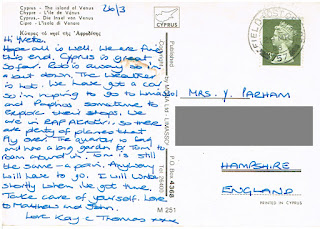 Cyprus - The island of Venus
Chypre - L'île de Vénus
Zypern - Die Insel von Venus
Cipro - L'isola di Venere
Κύπρος τό νησί τῆς Ἀφροδίτης
26/3
CYPRUS
Hi Yvete.
Hope all is well. We are fine
this end. Cyprus is great
so far. Rob is away so in
a bout down. The weather
is hot. We have got a car
so im hoping to go to Limassol
and Paphos sometime to
explore their shops. We
are in RAF Akrotiri. so there
are plenty of planes that
fly over. The quarter is big
and into a big garden for Tom to
roam around in. Tom is still
the same - a pain. Anyway
will have to go. I will write
shortly when i've got time.
Take care of yourself. Love
to Matthew and John.
Love Kay & Thomas xxxx
Copyright
Published
LIMASSOL
P.O. Box 4366
M 251
FIELD POST OFFICE
MRS. Y. PARHAM
HAMPSHIRE
ENGLAND
PRINTED IN CYPRUS